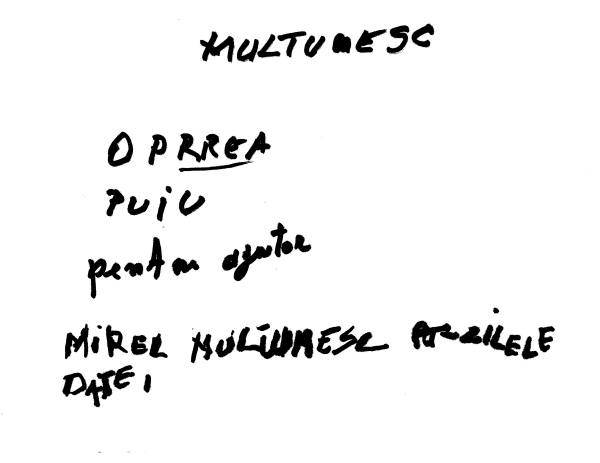 MULTUMESC
OPRREA
PUiU
pentru ajutor
MiREL MULTUMESC
DATE,